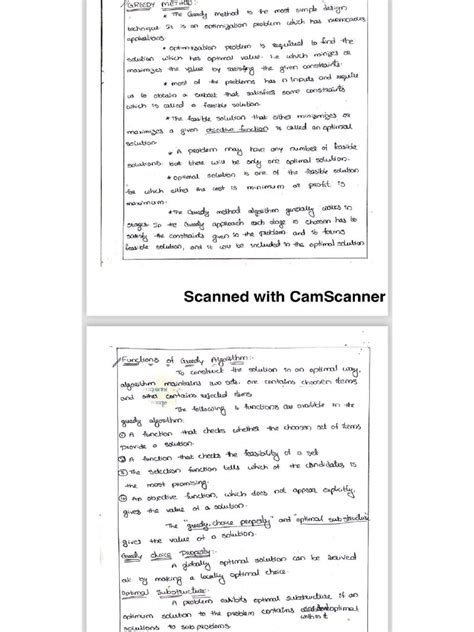 GREEDY METHOD:-
* The Greedy method is the most simple design
technique. It is an optimization problem which has
applications.
* optimization problem is required to find the
solution which has optimal value. i.e which
maximizes the value by satisfying the given constraints.
* most of the problems has n inputs and require
us to obtain a subset that satisfies some constraints
which is called a feasible solution.
* The feasible solution that either minimizes or
maximizes a given objective function is called an optimal
solution
* A problem may have any number of feasible
solutions but there will be only one optimal solution.
* optimal solution is one of the feasible solution
for which either the cost is minimum or profit is
maximum.
* The Greedy method algorithm generally works in
stages. So the Greedy approach each stage is choosen has to
satisfy the constraints given in the problem and it forms
feasible solution, and it will be included to the optimal solution
Scanned with CamScanner
Functions of Greedy Algorithm:-
To construct the solution in an optimal way,
algorithm maintains two sets. one contains choosen items
and other contains rejected items
The following 4 functions are available in the
greedy algorithm.
① A function that checks whether the choosen set of items
provide a solution.
② A function that checks the feasibility of a set
③ The selection function tells which of the candidates is
the most promising.
④ An objective function, which does not appear explicitly,
gives the value of a solution.
The "greedy choice property" and "optimal substructure
gives the value of a solution.
Greedy choice Property:-
A globally optimal solution can be arrived
at by making a locally optimal choice.
Optimal Substructure:-
A problem exhibits optimal substructure if an
optimum solution to the problem contains optimal
within it
solutions to sub problems.